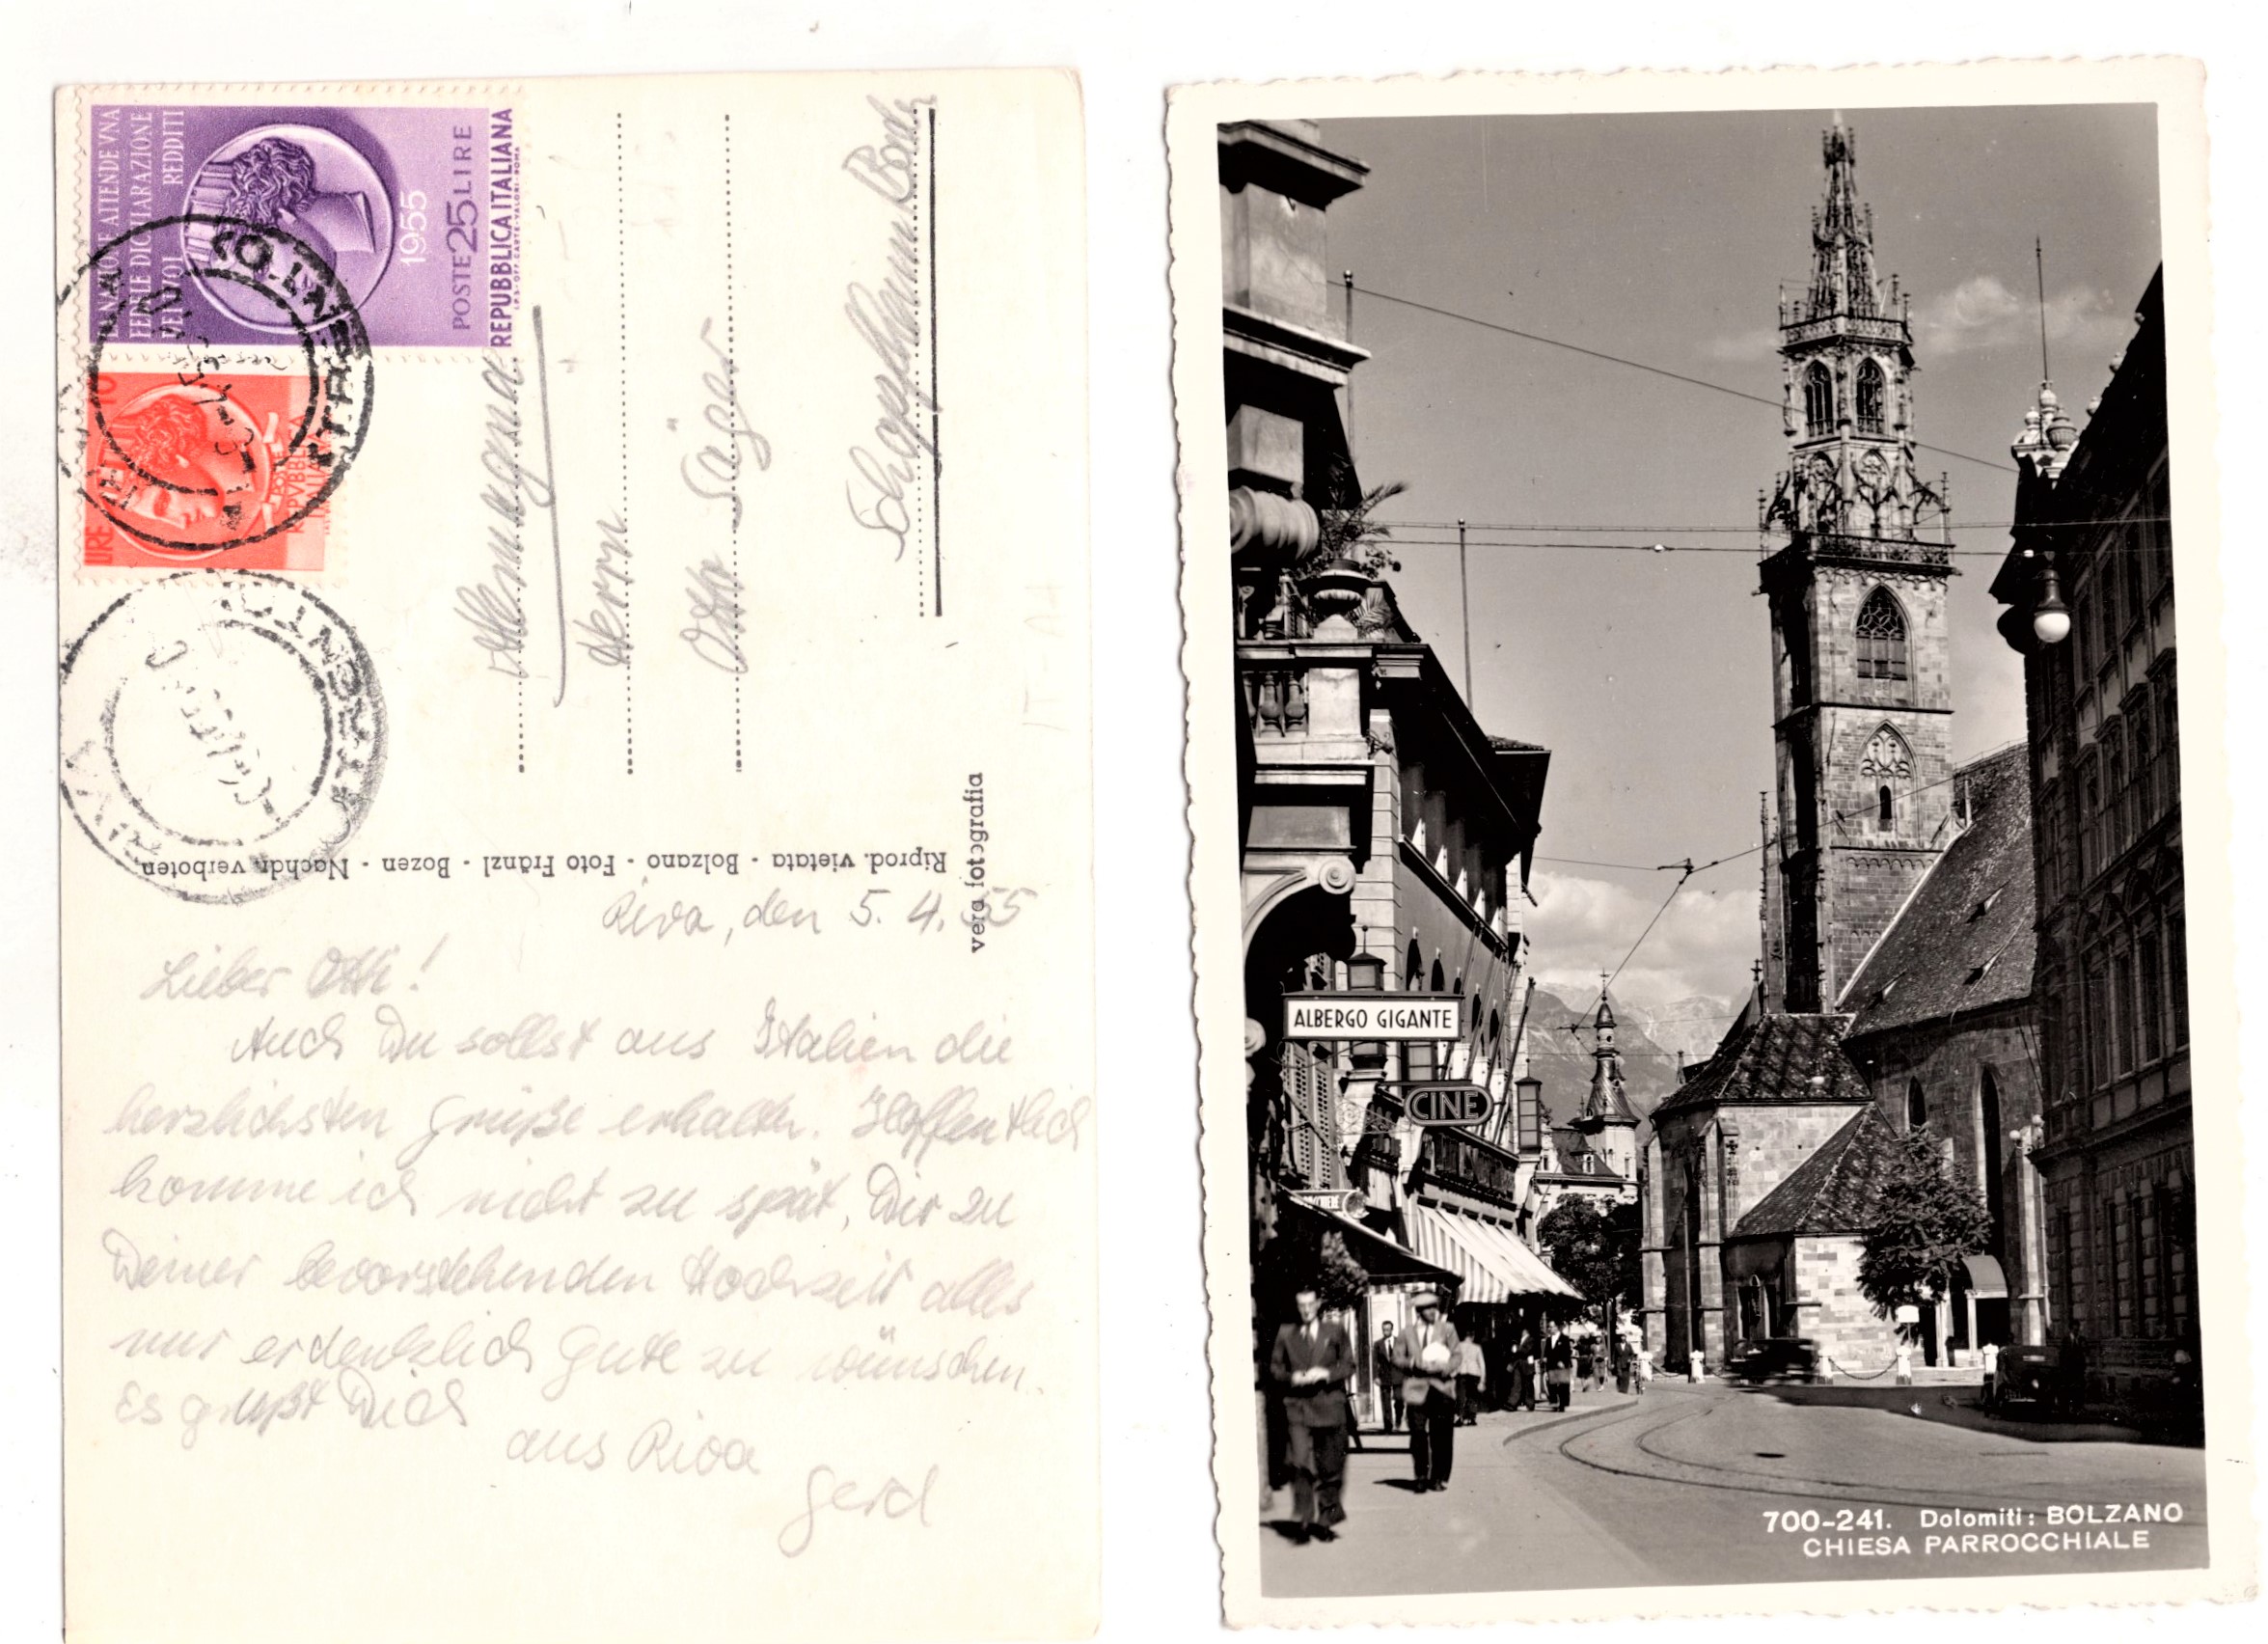 L'ENNIO E ATTENDE VNA
FEDELE DICHIARAZIONE
REDDITI
1955
POSTE 25 LIRE
REPUBBLICA ITALIANA
I.P.S.-OFF. CARTE-VALORI-ROMA
LIRE 10
POSTE
REPVBBLICA
ITALIANA
Herrn
Otto Säger
vera fotografia
Riprod. vietata - Bolzano - Foto Fränzl - Bozen - Nachdr. verboten
Riva, den 5. 4. 55
Lieber Otti!
Auch Du sollst aus Italien die
herzlichsten Grüße erhalten. Hoffentlich
komme ich nicht zu spät, Dir zu
Deiner bevorstehenden Hochzeit alles
nur erdenklich Gute zu wünschen.
Es grüßt Dich
aus Riva
Gerd
ALBERGO GIGANTE
CINE
700-241. Dolomiti: BOLZANO
CHIESA PARROCCHIALE